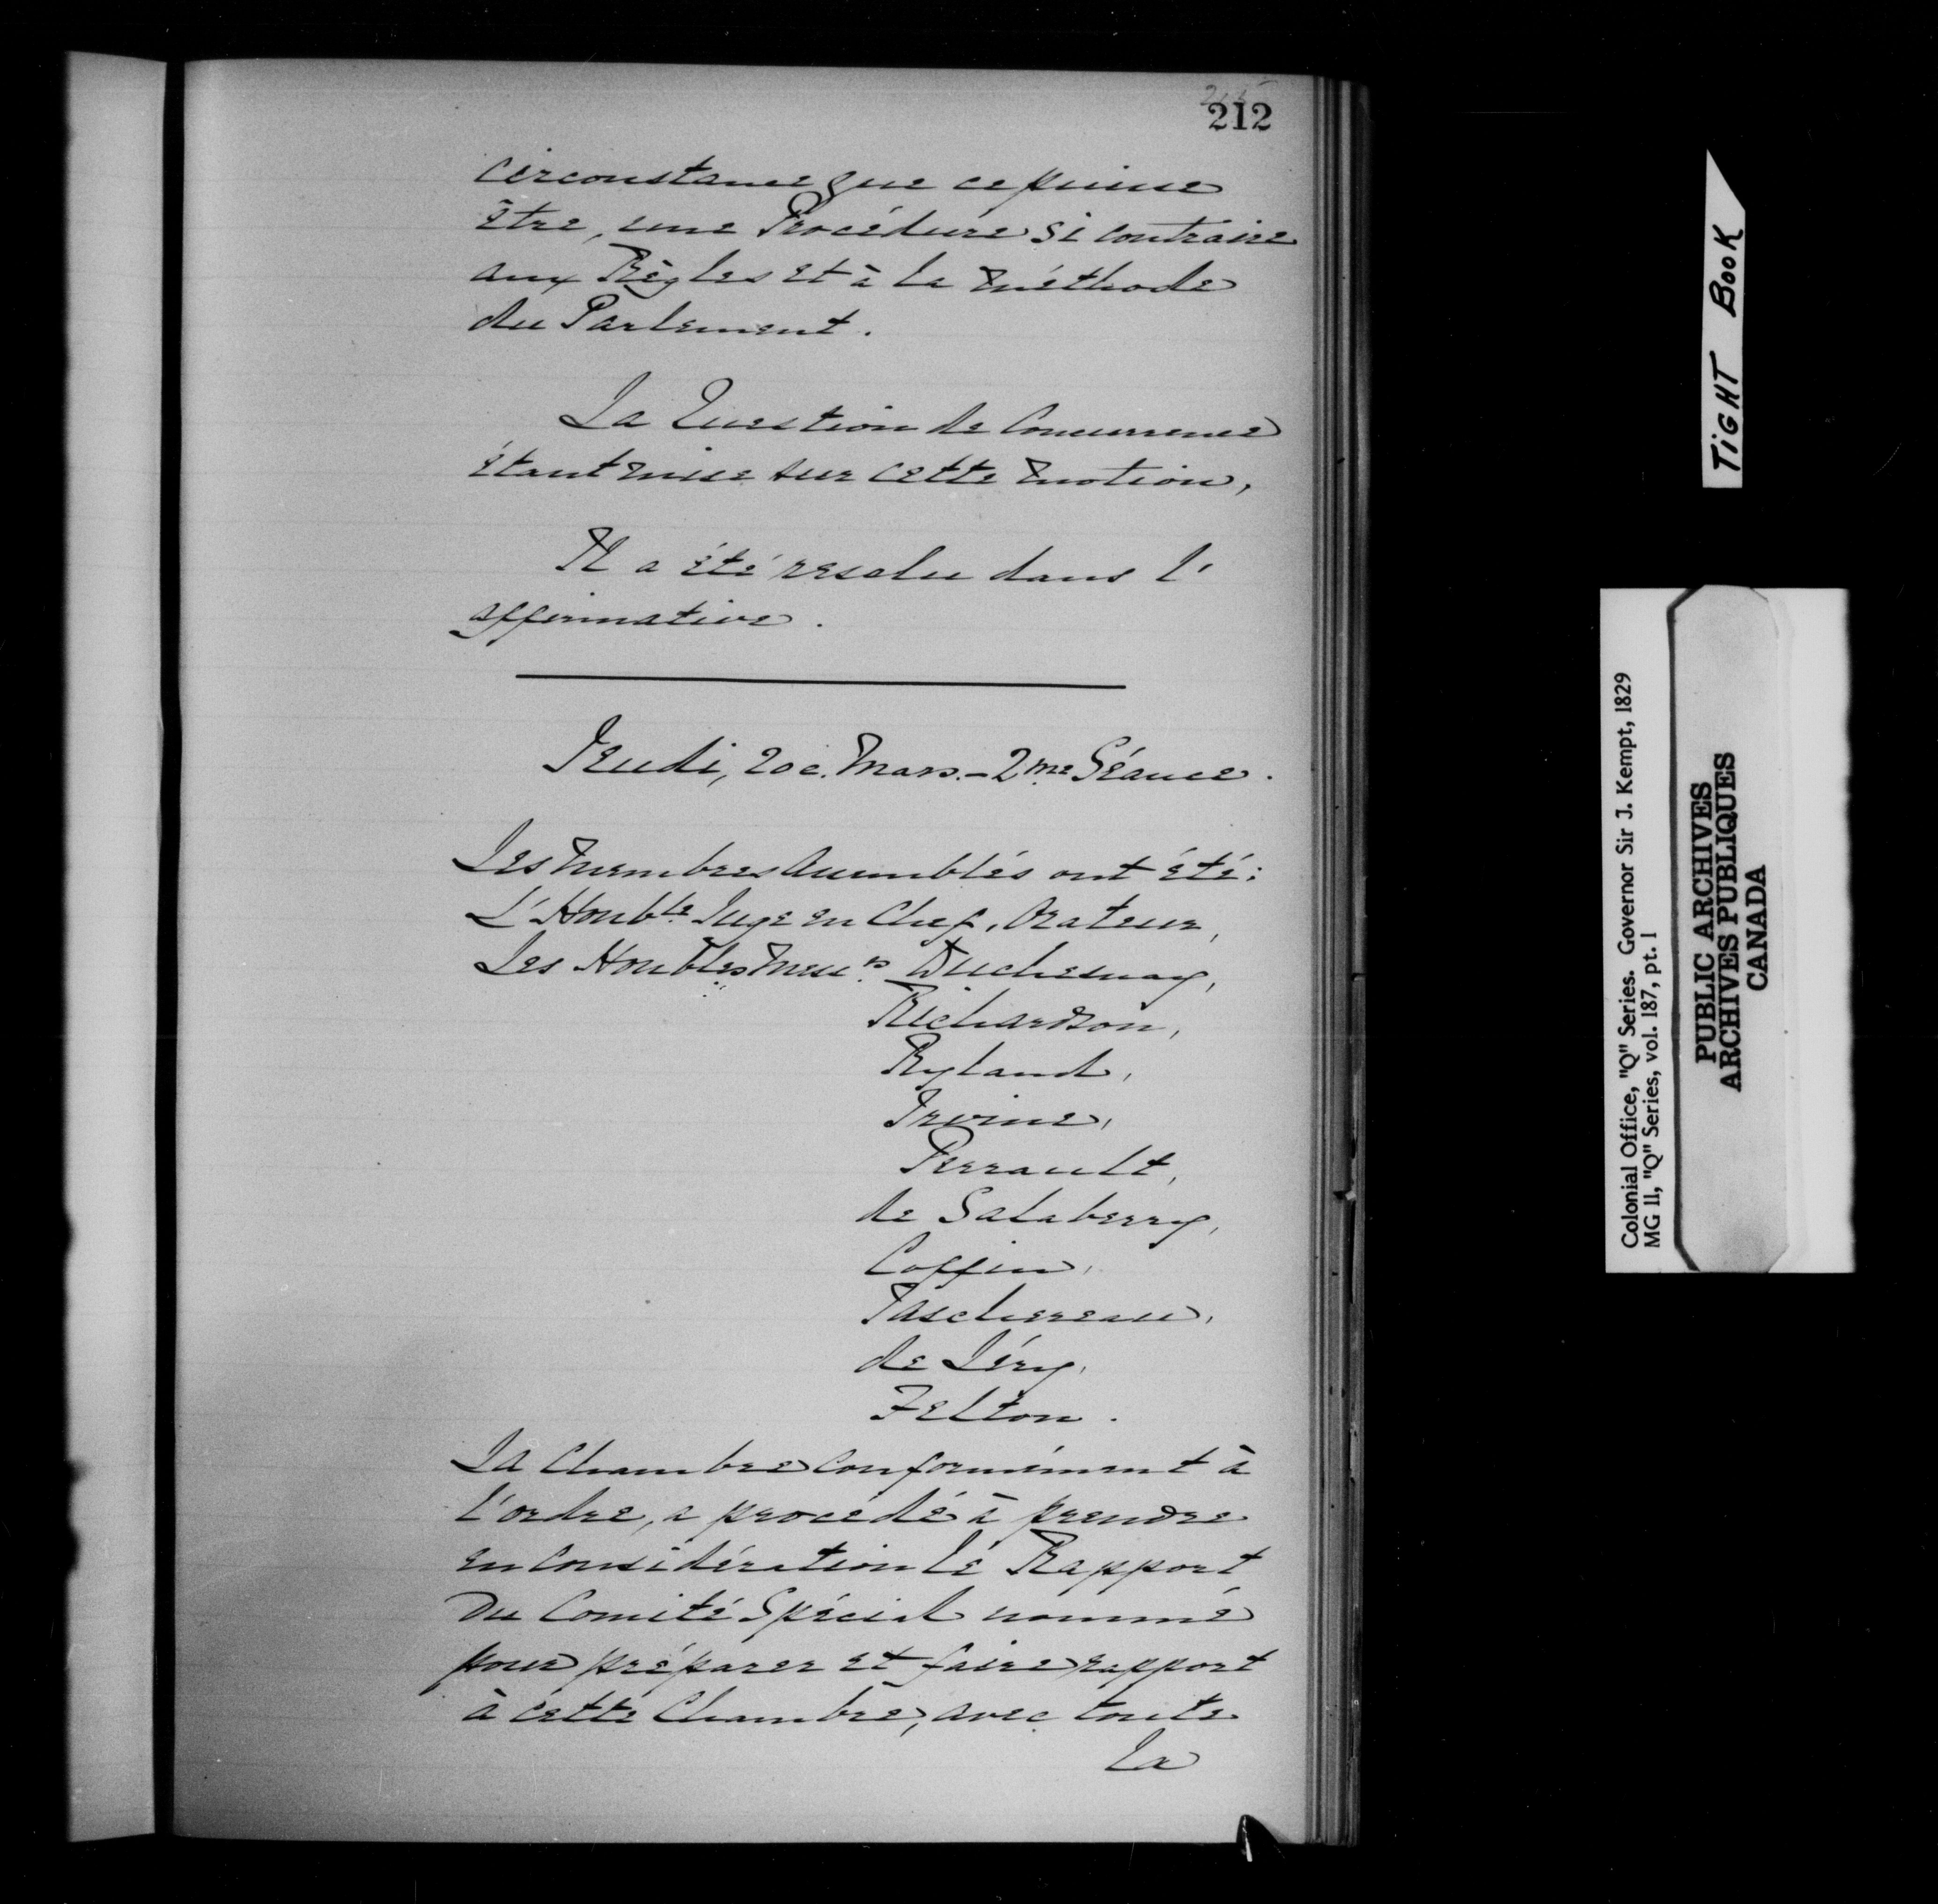 212
circonstance que ce puisse
être, une Procédure si contraire
aux Règles et à la Méthode
du Parlement.
La Question de Concurrence
étant mise sur cette Motion,
Il a été resolu dans l'
affirmative.
Jeudi, 20e. Mars. - 2me Séance.
Les Membres Assemblés ont été:
L'Honble Juge en Chef, Orateur,
Les Honbles Messrs Duchesnay,
Richardson,
Ryland,
Irvine,
Perrault,
de Salaberry,
Coffin,
Taschereau,
de Léry,
Felton.
La Chambre conformément à
l'ordre, a procédé à prendre
en Considération le Rapport
du Comité Spécial nommé
pour préparer et faire rapport
à cette Chambre, avec toute
la
TIGHT BOOK
Colonial Office, "Q" Series. Governor Sir J. Kempt, 1829
MG 11, "Q" Series, vol. 187, pt. 1
PUBLIC ARCHIVES
ARCHIVES PUBLIQUES
CANADA